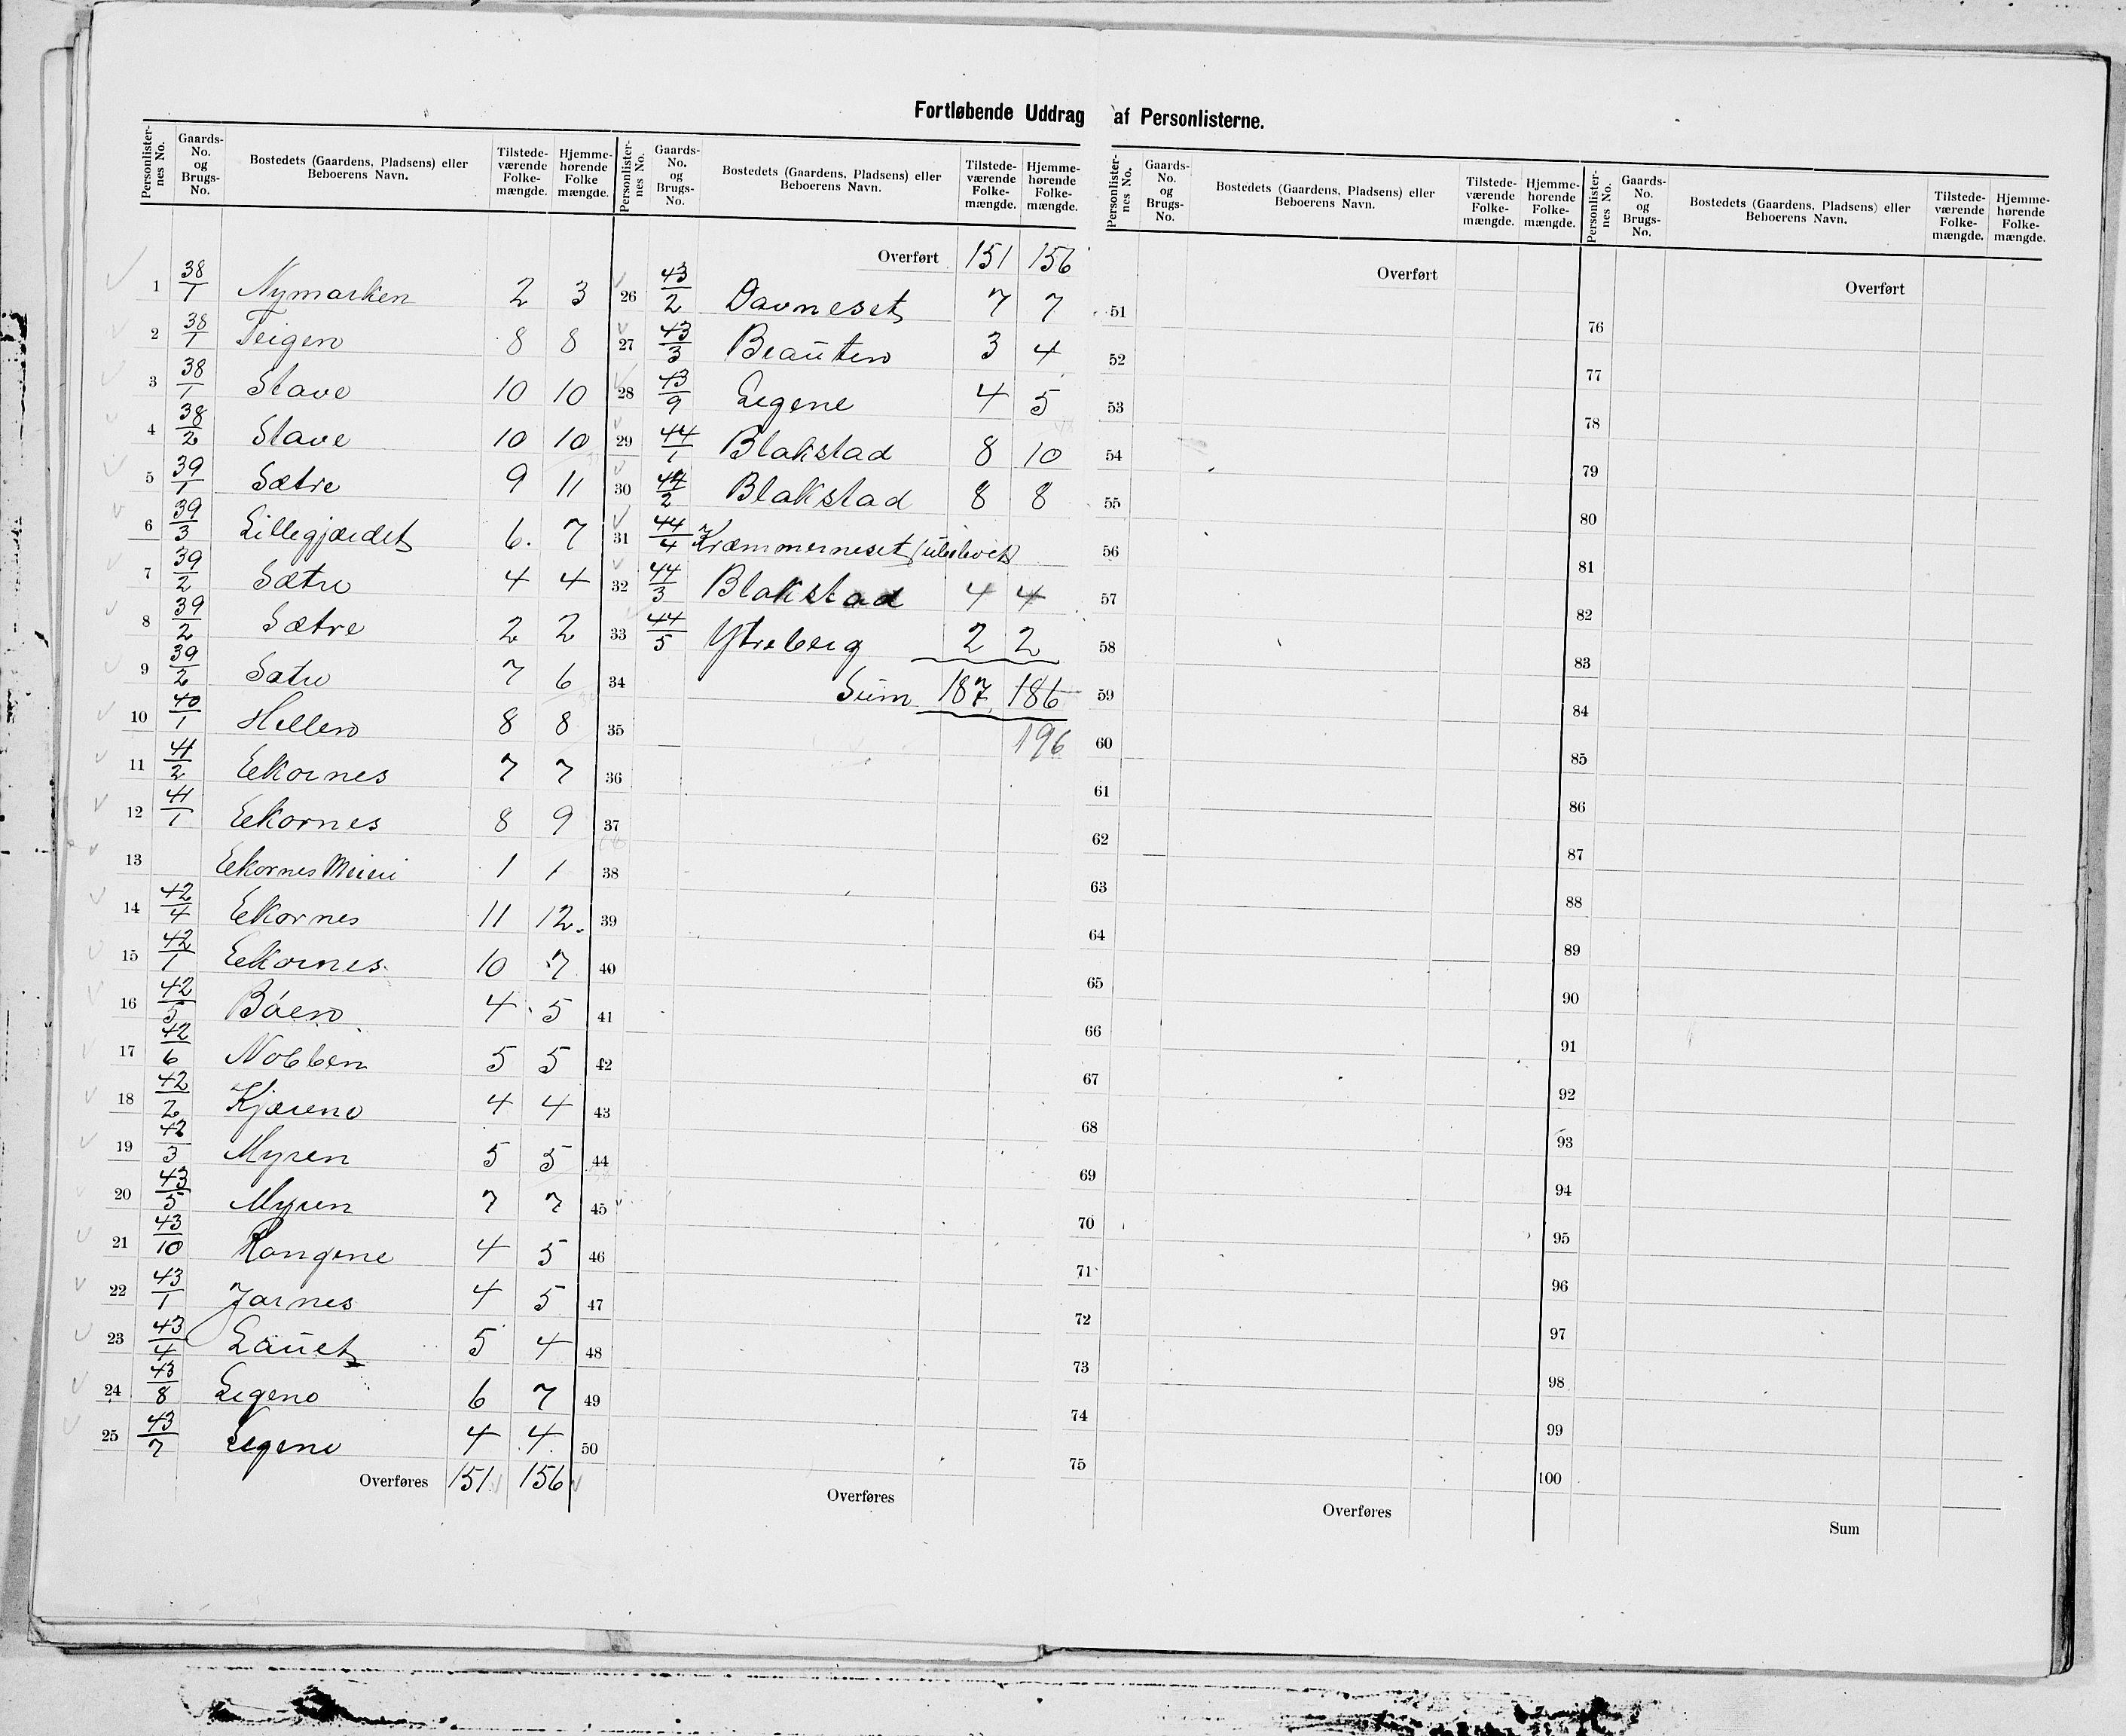 Fortløbende Uddrag af Personlisterne.
Personlister-nes No. Gaards-No. og Brugs-No. Bostedets (Gaardens, Pladsens) eller Beboerens Navn. Tilstede-værende Folke-mængde. Hjemme-hørende Folke mængde.
1 38/1 Nymarken 2 3
2 38/1 Teigen 8 8
3 38/1 Stave 10 10
4 38/2 Stave 10 10
5 39/1 Sætre 9 11
6 39/3 Lillegjærdet 6. 7
7 39/2 Sætre 4 4
8 39/2 Sætre 2 2
9 39/2 Sætre 7 6
10 40/1 Hellen 8 8
11 41/2 Eekornes 7 7
12 41/1 Eekornes 8 9
13 Eekornes Meieri 1 1
14 42/4 Eekornes 11 12.
15 42/1 Eekornes 10 7
16 42/5 Bøen 4 5
17 42/6 Nobben 5 5
18 42/2 Kjærene 4 4
19 42/3 Myren 5 5
20 43/5 Myren 7 7
21 43/10 Rangene 4 5
22 43/1 Jarnes 4 5
23 43/4 Lauet 5 4
24 43/8 Legene 6 7
25 43/7 Legene 4 4
Overføres 151 156
Personlister-nes No. Gaards-No. og Brugs-No. Bostedets (Gaardens, Pladsens) eller Beboerens Navn. Tilstede-værende Folke-mængde. Hjemme-hørende Folke-mængde.
Overført 151 156
26 43/2 Davneset 7 7
27 43/3 Brauten 3 4
28 43/9 Legene 4 5
29 44/1 Blakstad 8 10
30 44/2 Blakstad 8 8
31 44/4 Kræmmerneset (ubeboet)
32 44/3 Blakstad 4 4
33 44/5 Ytreberg 2 2
34 Sum 187 186
35 196
36
37
38
39
40
41
42
43
44
45
46
47
48
49
50
Overføres
Personlister-nes No. Gaards-No. og Brugs-No. Bostedets (Gaardens, Pladsens) eller Beboerens Navn. Tilstede-værende Folke-mængde. Hjemme-hørende Folke-mængde.
Overført
51
52
53
54
55
56
57
58
59
60
61
62
63
64
65
66
67
68
69
70
71
72
73
74
75
Overføres
Personlister-nes No. Gaards-No. og Brugs-No. Bostedets (Gaardens, Pladsens) eller Beboerens Navn. Tilstede-værende Folke-mængde. Hjemme-hørende Folke-mængde.
Overført
76
77
78
79
80
81
82
83
84
85
86
87
88
89
90
91
92
93
94
95
96
97
98
99
100
Sum